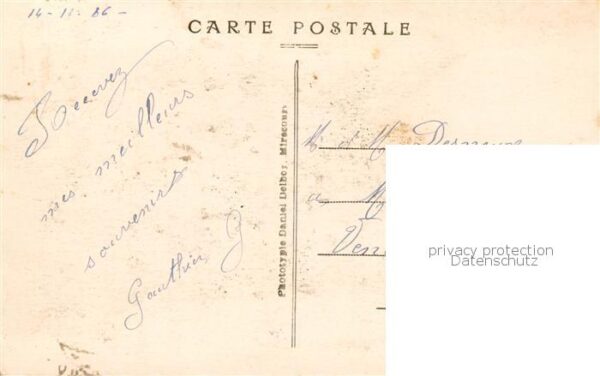 14-11-86-
CARTE POSTALE
Recevez
mes meilleurs
souvenirs
Gauthier J
Phototypie Daniel Delboy, Mirecourt
M et M
a M
Ven
privacy protection
Datenschutz